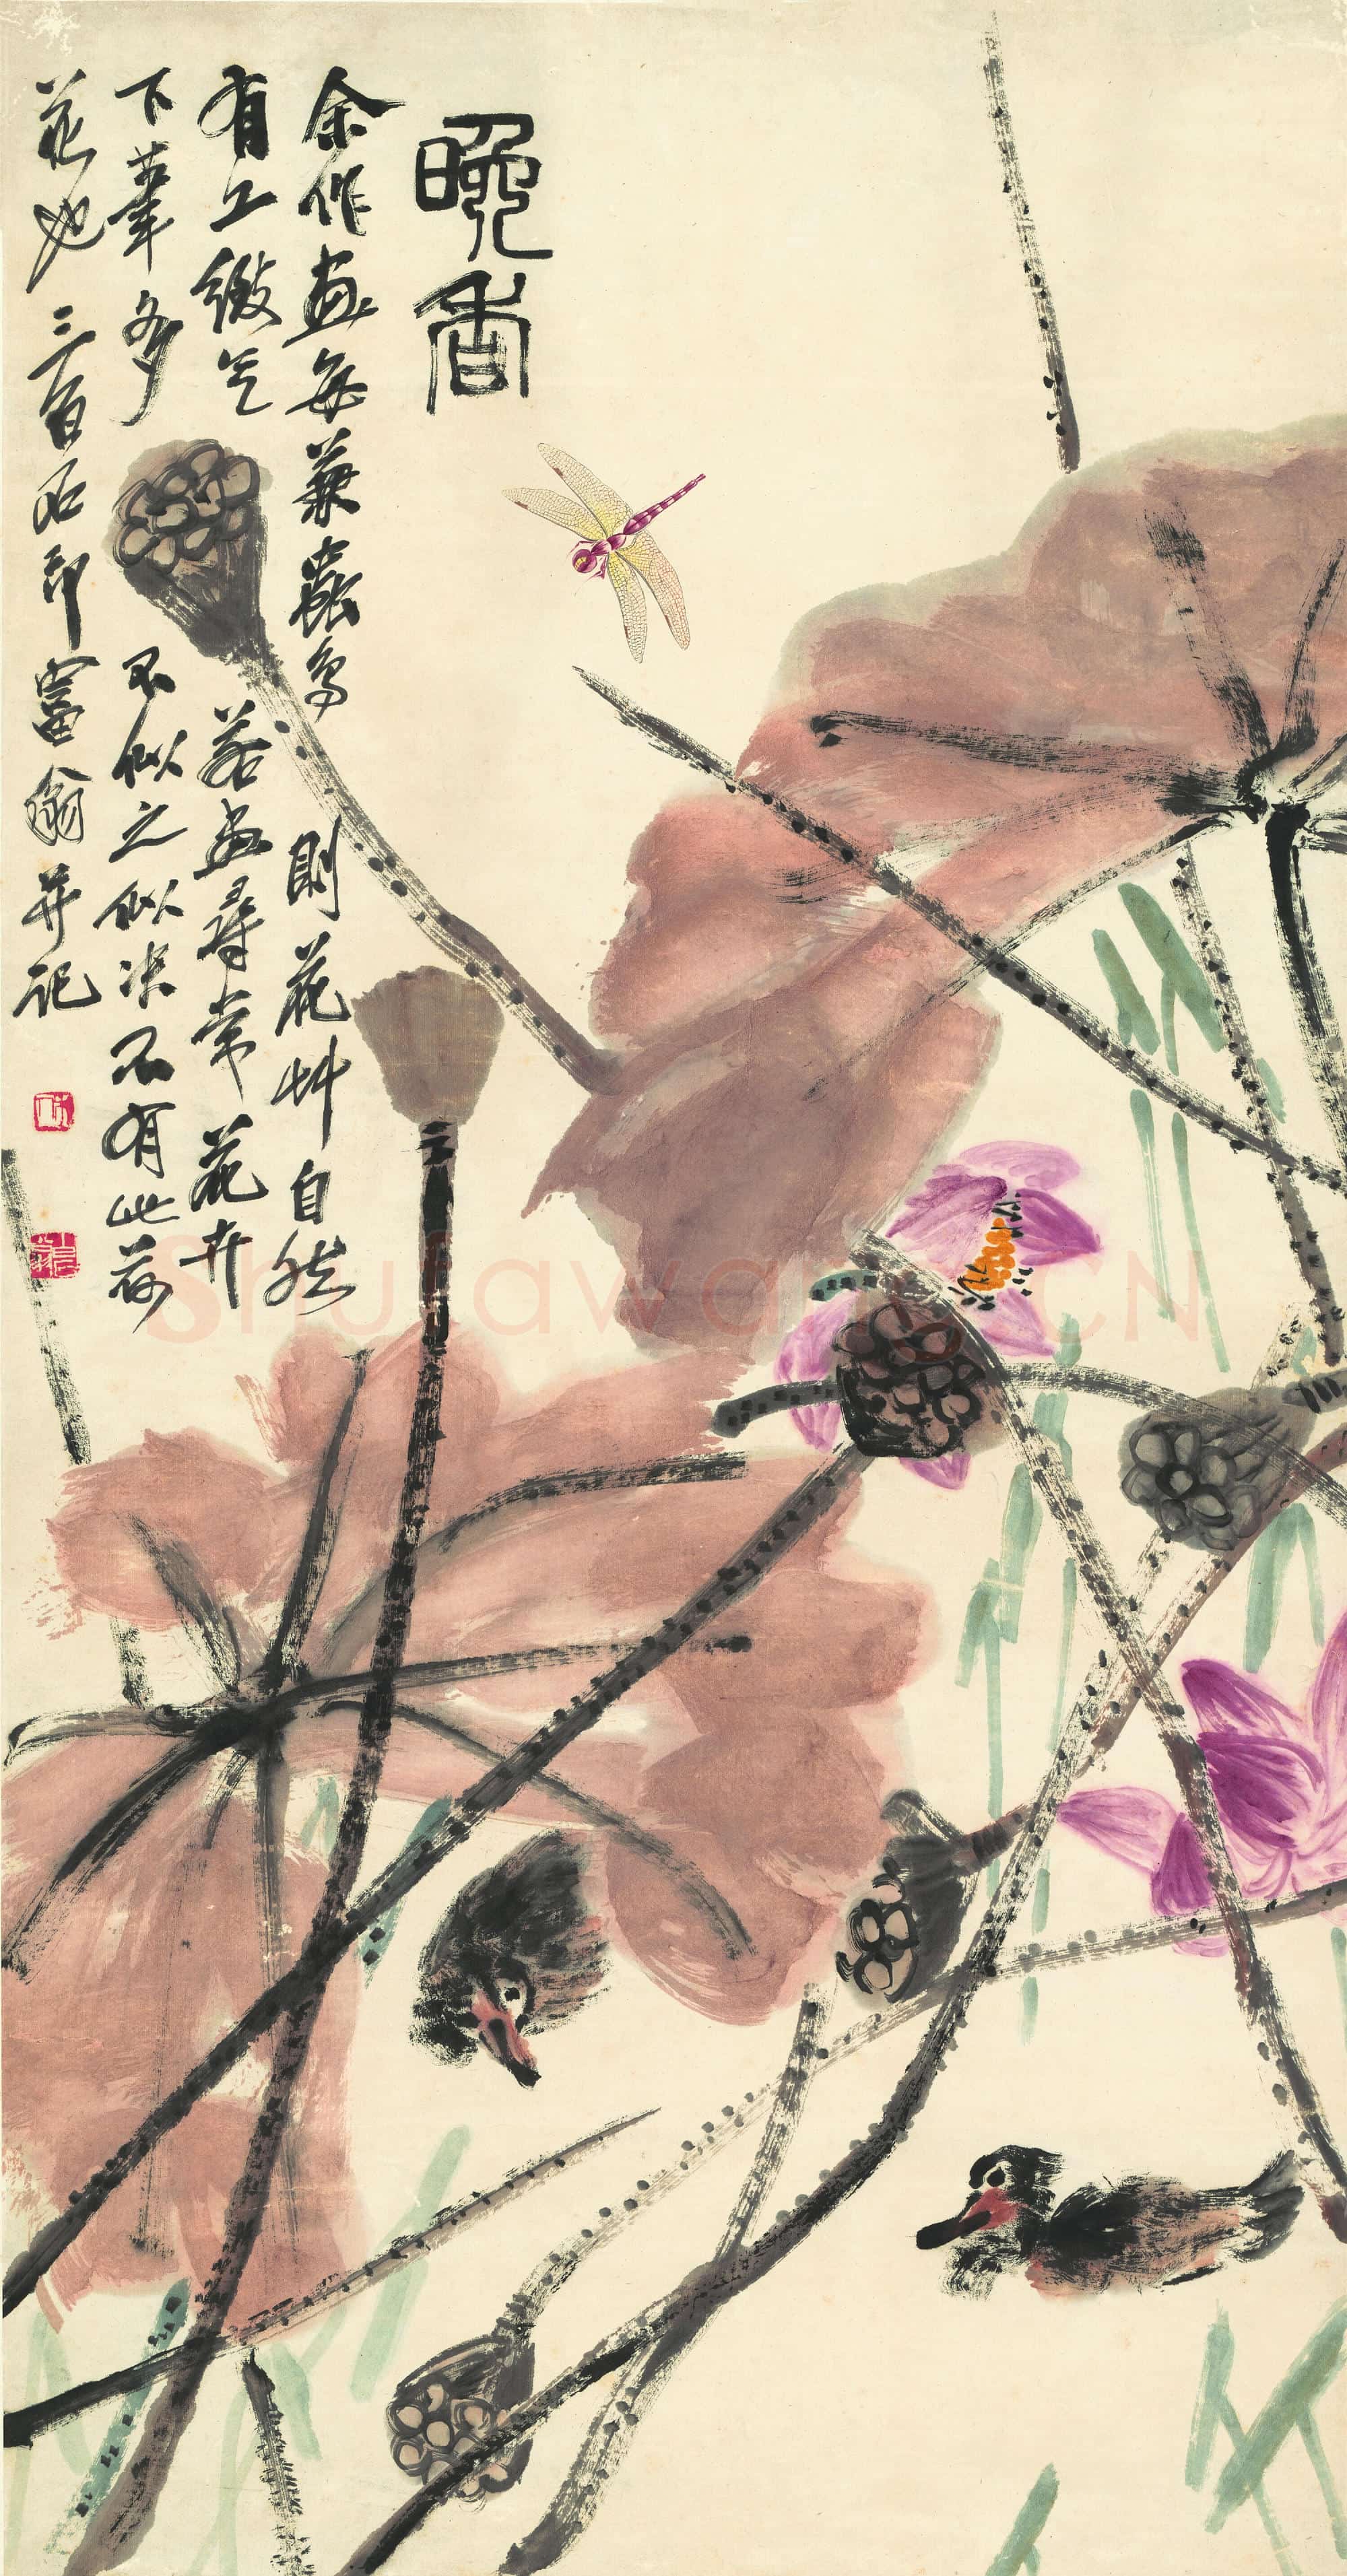 晚香
余作画每兼蟲鳥則花艸自然
有工緻气若画尋常花卉
下筆多不似之似决不有此荷
花也三百石印富翁并記
ShufawangCN